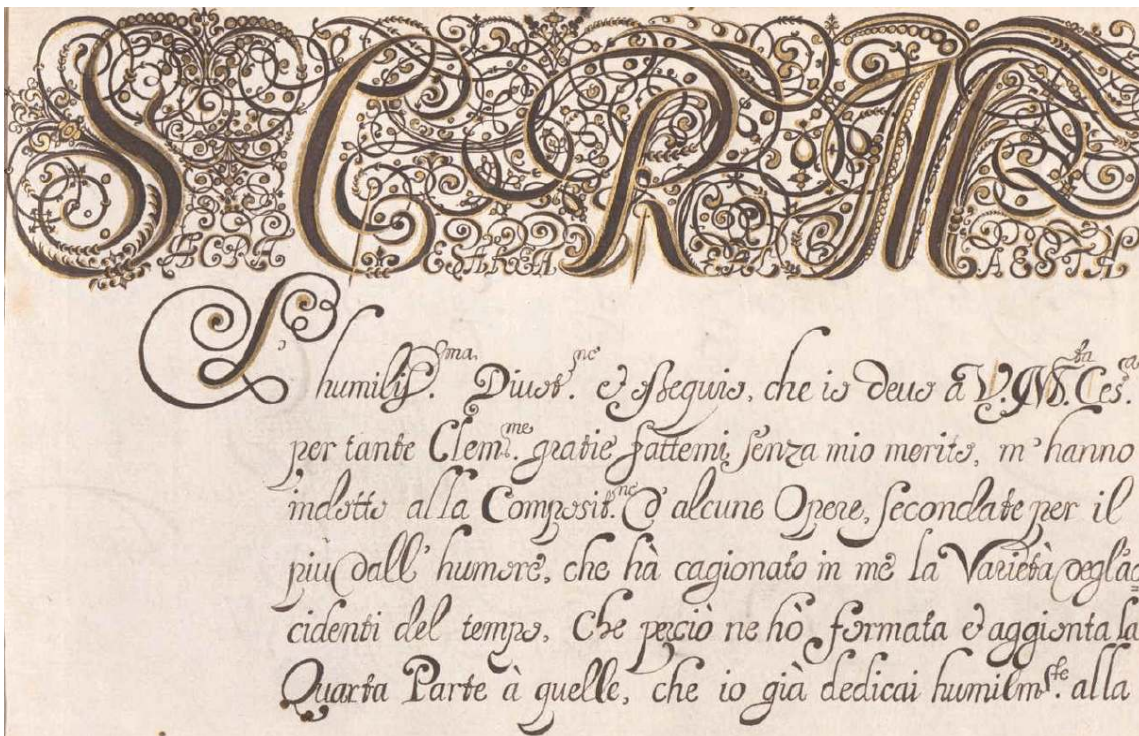 SACRA CESAREA REAL MAESTA
L'humiliss.ma Divot.ne e osseguio, che io devo a V. M.ta Ces.a
per tante Clem.me gratie fattemi, senza mio merito, m'hanno
indotto alla Composit.ne d'alcune Opere, secondate per il
più dall' humore, che hà cagionato in me la Varietà degl'ac
cidenti del tempo, Che perciò ne hò formata e aggionta la
Quarta Parte à quelle, che io già dedicai humilm.te alla